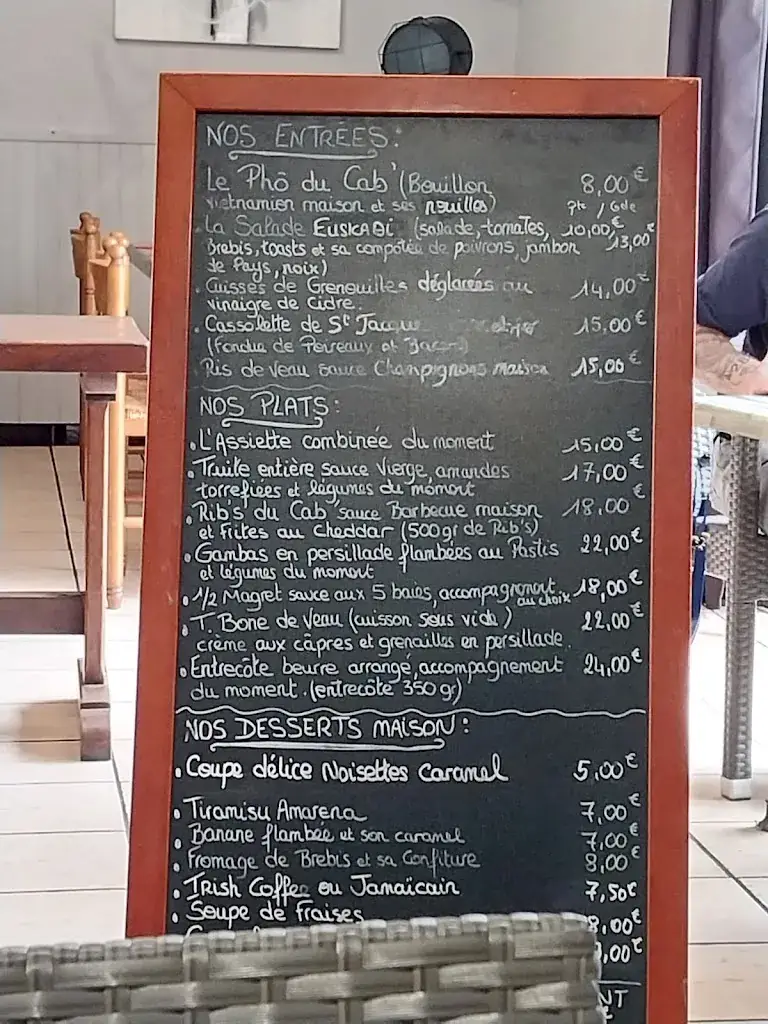 NOS ENTRÉES:
Le Phô du Cab' (Bouillon 8,00€
vietnamien maison et ses nouilles) Pte / Gde
La Salade EUSKADI (salade, tomates, 10,00€ 13,00€
Brebis, toasts et sa compotée de poivrons, jambon
de Pays, noix)
. Cuisses de Grenouilles déglacées au 14,00€
vinaigre de cidre.
. Cassolette de St Jacques 15,00€
(Fondue de Poireaux et Bacon)
. Ris de veau sauce Champignons maison 15,00€
NOS PLATS:
. L'Assiette combinée du moment 15,00€
. Truite entière sauce Vierge, amandes 17,00€
torrefiées et légumes du moment
. Rib's du Cab' sauce Barbecue maison 18,00€
et Frites au Cheddar (500gr de Rib's)
. Gambas en persillade flambées au Pastis 22,00€
et légumes du moment
. 1/2 Magret sauce aux 5 baies, accompagnement au choix 18,00€
. T. Bone de Veau (cuisson sous vide) 22,00€
crème aux câpres et grenailles en persillade.
. Entrecôte beurre arrangé, accompagnement 24,00€
du moment. (entrecôte 350gr)
NOS DESSERTS MAISON:
. Coupe délice Noisettes Caramel 5,00€
. Tiramisu Amarena 7,00€
. Banane flambée et son caramel 7,00€
. Fromage de Brebis et sa Confiture 8,00€
. Irish Coffee ou Jamaïcain 7,50€
. Soupe de Fraises 8,00€
,00€
NT